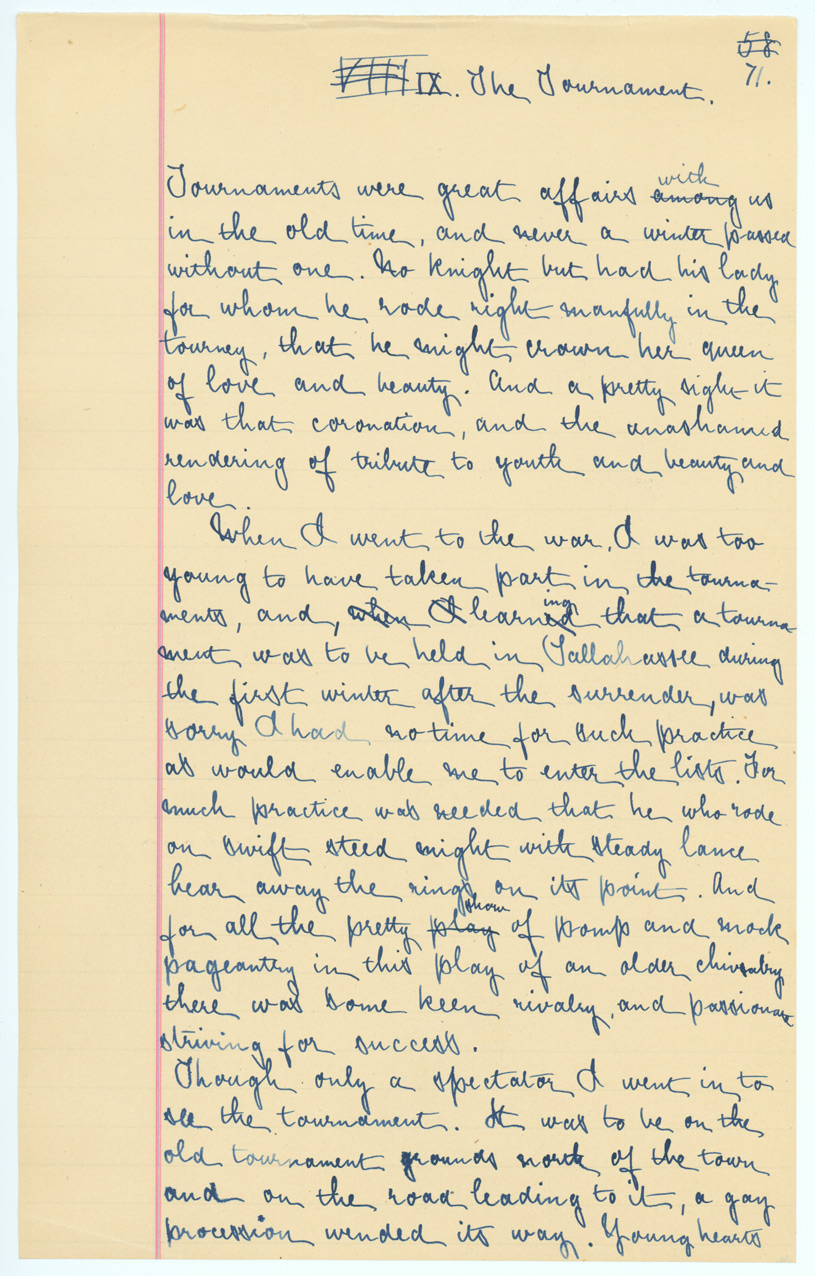 58
71.
VIII IX. The Tournament.
with
Tournaments were great affairs among us
in the old time, and never a winter passed
without one. No knight but had his lady
for whom he rode right manfully in the
tourney, that he might crown her queen
of love and beauty. And a pretty sight it
was that coronation, and the unashamed
rendering of tribute to youth and beauty and
love.
When I went to the war, I was too
young to have taken part in the tourna-
ing
ments, and, when I learned that a tourna-
ment was to be held in Tallahassee during
the first winter after the surrender, was
sorry I had no time for such practice
as would enable me to enter the lists. For
much practice was needed that he who rode
on swift steed might with steady lance
bear away the rings on its point. And
show
for all the pretty play of pomp and mock
pageantry in this play of an older chivalry
there was some keen rivalry, and passionate
striving for success.
Though only a spectator I went in to
see the tournament. It was to be on the
old tournament grounds north of the town
and on the road leading to it, a gay
procession wended its way. Young hearts